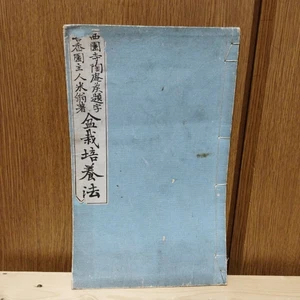 西園寺陶庵侯題字
香園主人水納著
盆栽培養法